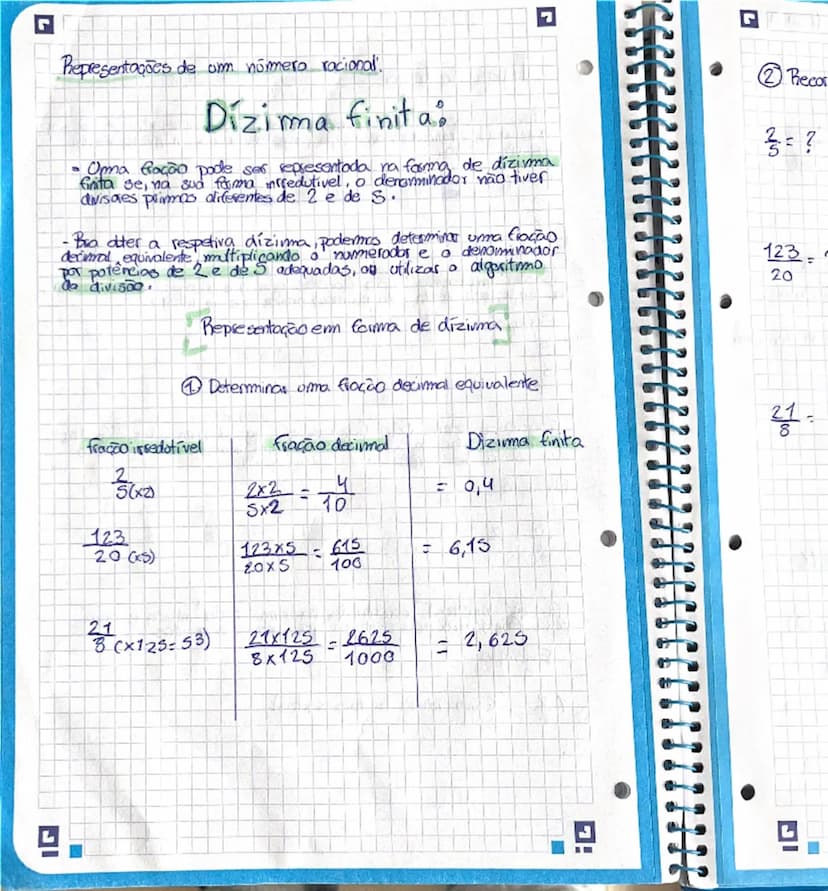 Representações de um número racional:
Dízima finita:
- Uma fração pode ser representada na forma de dízima
finita se, na sua forma irredutível, o denominador não tiver
divisores primos diferentes de 2 e de 5.
- Para obter a respetiva dízima, podemos determinar uma fração
decimal, equivalente, multiplicando o numerador e o denominador
por potências de 2 e de 5 adequadas, ou utilizar o algoritmo
da divisão.
[Representação em forma de dízima]
① Determinar uma fração decimal equivalente
fração irredutível fração decimal Dízima finita
2/5(x2) 2x2/5x2 = 4/10 = 0,4
123/20 (x5) 123x5/20x5 = 615/100 = 6,15
21/8 (x125=53) 21x125/8x125 = 2625/1000 = 2,625
② Recor
2/5 = ?
123/20 =
21/8 =